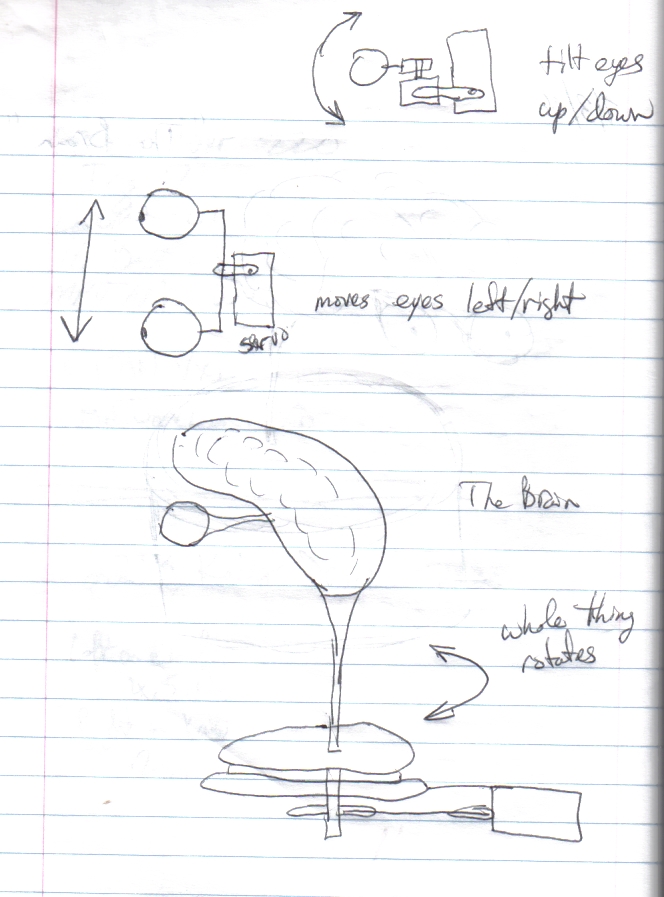 tilt eyes
up/down
moves eyes left/right
servo
The Brain
whole thing
rotates